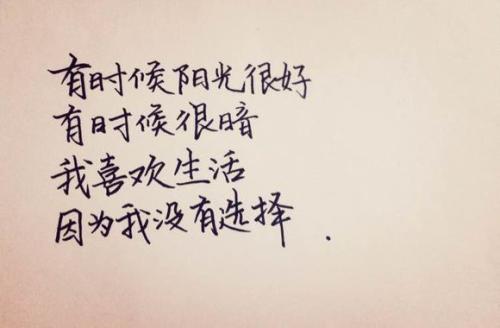 有时候阳光很好
有时候很暗
我喜欢生活
因为我没有选择.